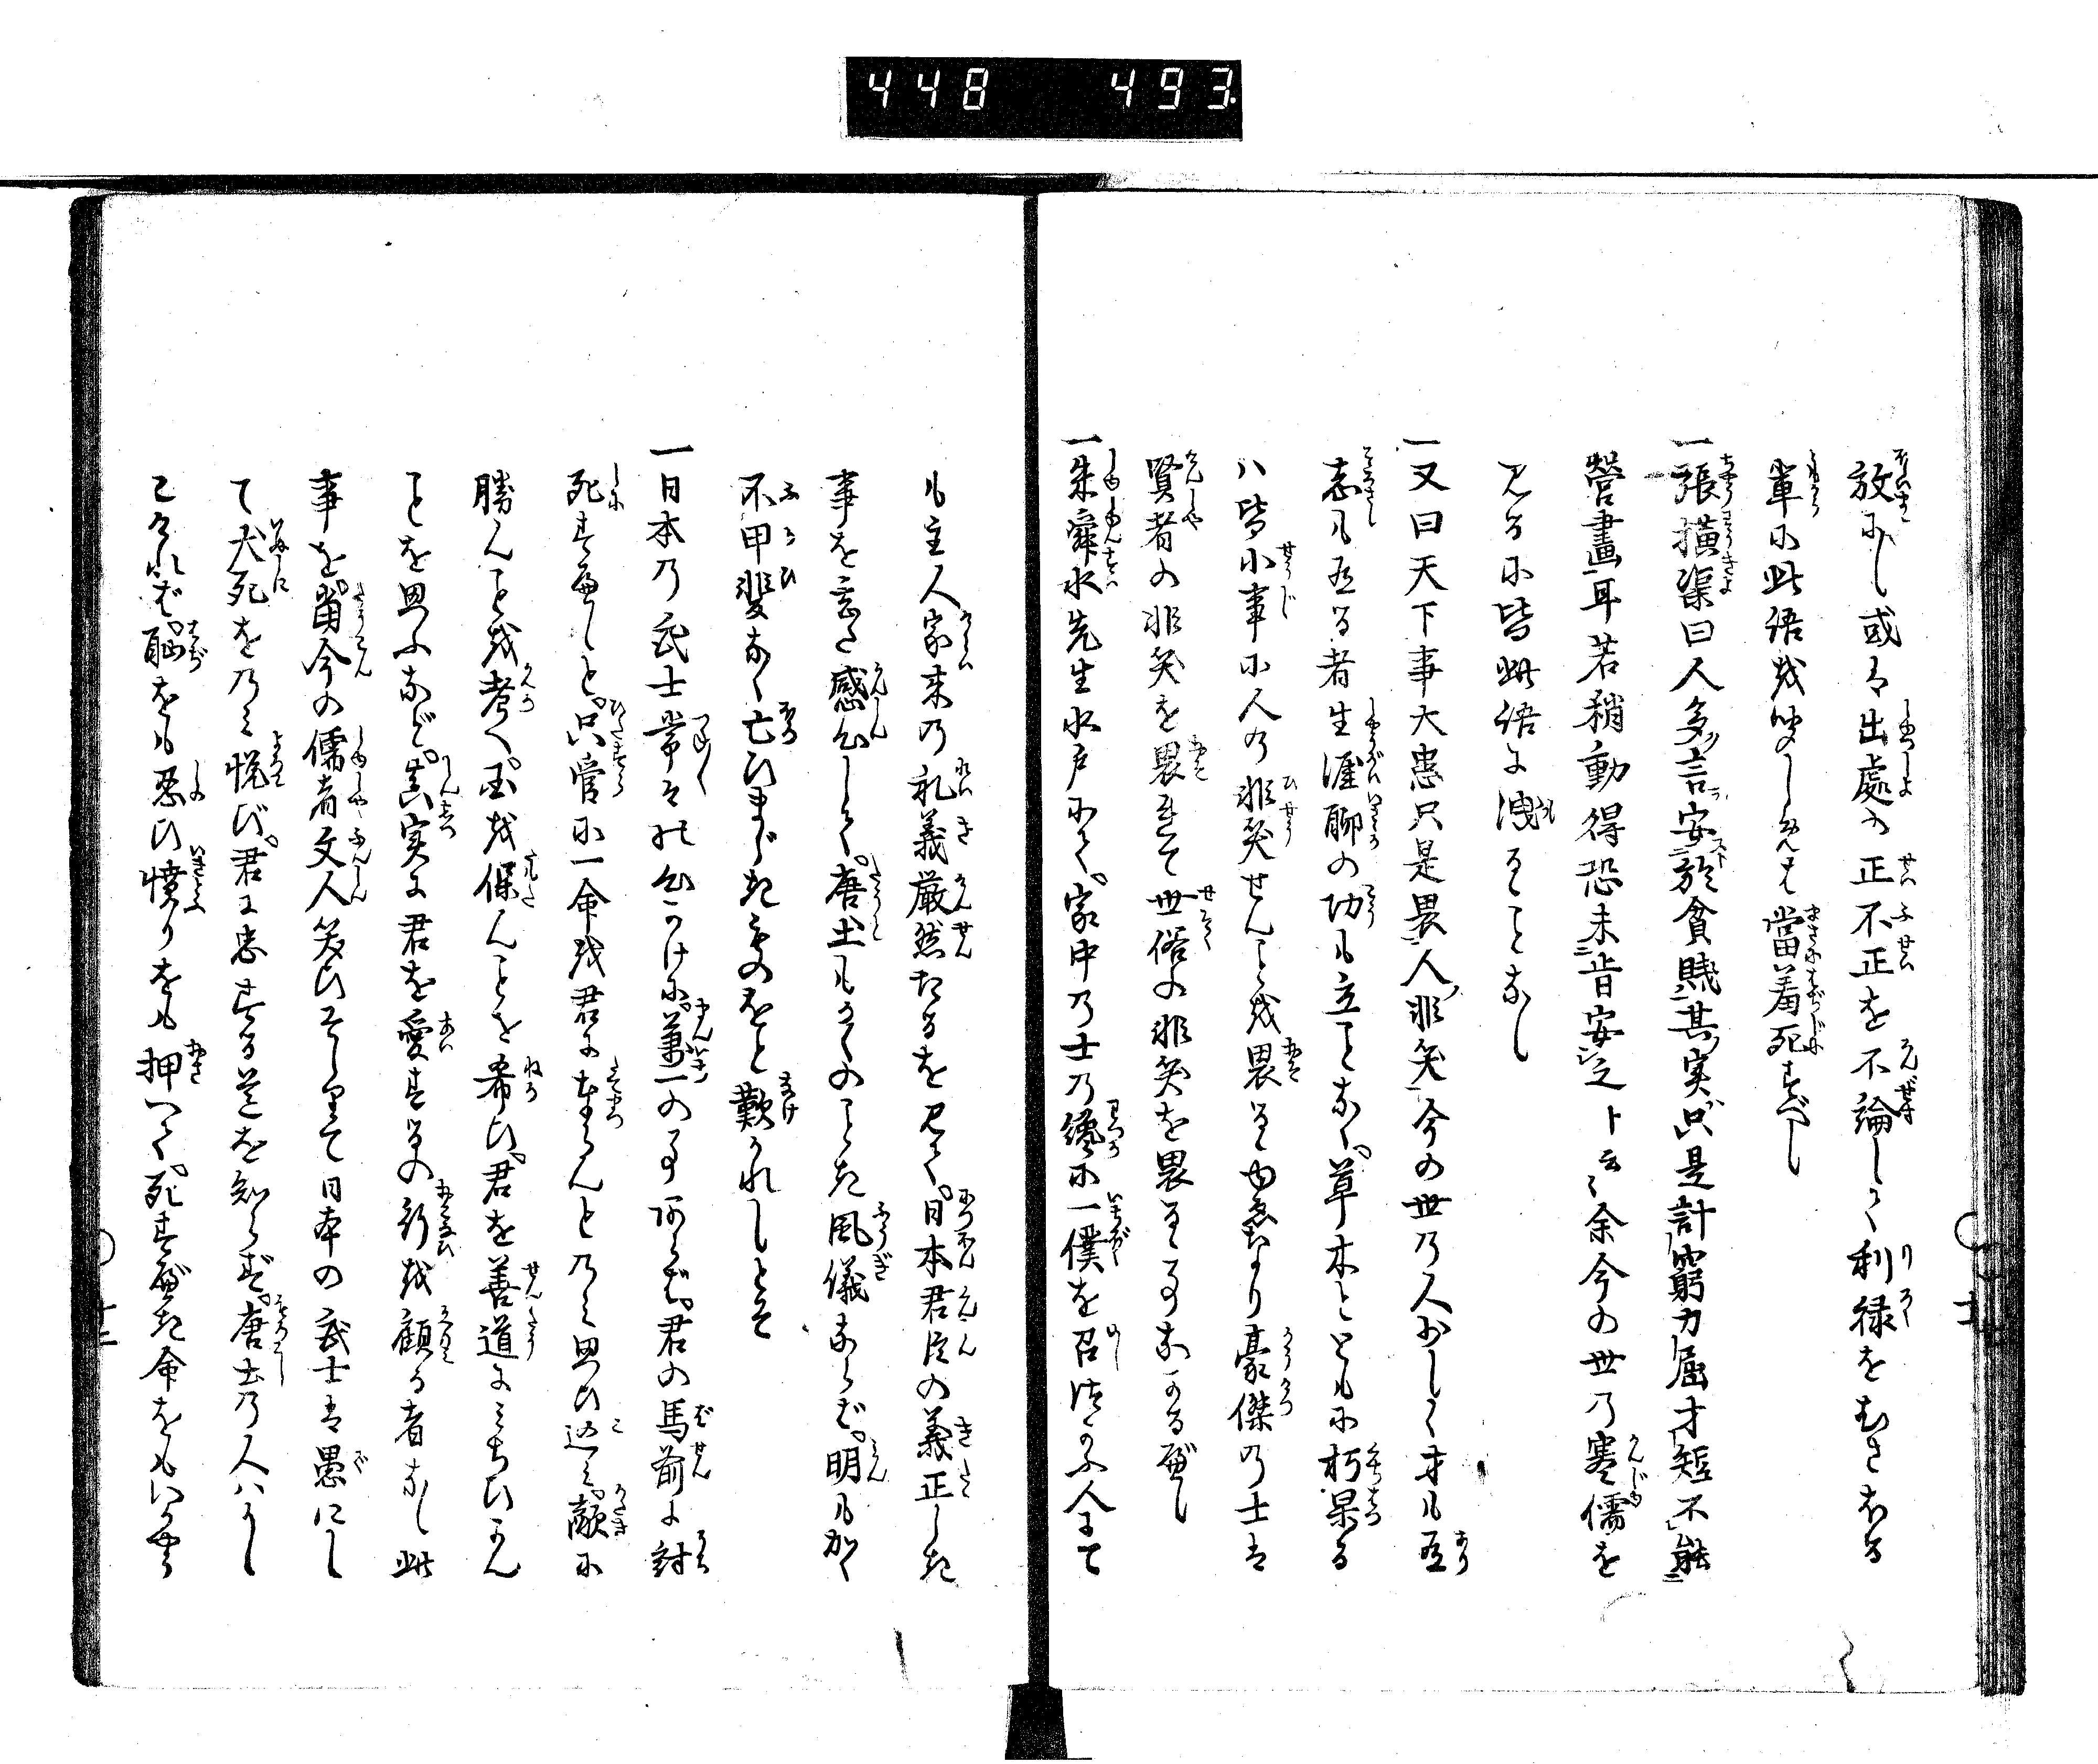 448 493
放にし或は出處の正不正を不論して利禄をむさぼる
輩に此語を聞しめば當羞死すべし
一張横渠曰人多言安於貧賤其実只是計窮力屈才短不能
營畫耳若稍動得恐未肯安之ト云々余今の世乃寒儒を
見るに皆此語に洩ることなし
一又曰天下事大患只是畏人非笑今の世乃人少しく才も有
志も有る者生涯聊の功も立ことなく草木とともに朽果る
ハ皆小事に人乃非笑せんことを畏るゝゆゑなり豪傑乃士は
賢者の非笑を畏れて世俗の非笑を畏るゝ事なかるべし
一朱舜水先生水戸にて家中乃士乃纔に一僕を召仕ふ人にて
も主人家来乃礼義厳然たるを見て日本君臣の義正しき
事を甚だ感心して唐土もかくのごとき風儀ならば明も如く
不甲斐なく亡びまじきものをと歎かれしとぞ
一日本乃武士常々の心がけに萬一の事あらば君の馬前に討
死すべしと只管に一命を君に奉らんと乃み思ひ込み敵に
勝んことを考へ国を保んことを希ひ君を善道にみちびかん
ことを思ふなど真実に君を愛するの行を顧る者なし此
事を當今の儒者文人笑ひそしりて日本の武士は愚にし
て犬死を乃み悦び君に忠する道を知らず唐土乃人ハかし
こければ恥をも忍び憤りをも押へて死すべき命をもいかやう